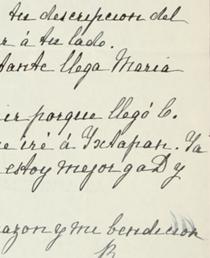 tu descripcion del
r á tu lado.
tante llega Maria
ir porque llegó C.
e iré á Ixtapan. Ya
estoy mejor gaD y
azon y mi bendicion
R